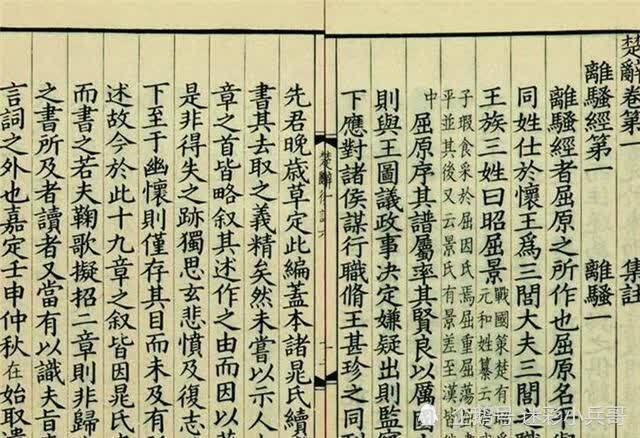 楚辭卷第一 集註
離騷經第一 離騷一
離騷經者屈原之所作也屈原名
同姓仕於懷王爲三閭大夫三閭
王族三姓曰昭屈景
戰國策楚有
元和姓纂云
子瑕食采於屈因氏焉屈重屈蕩
平並其後又云景氏有景差至漢皆
中 屈原序其譜屬率其賢良以厲國
則與王圖議政事決定嫌疑出則監察
下應對諸侯謀行職脩王甚珍之同列
楚辭
先君晚歲草定此編蓋本諸晁氏續
書其去取之義精矣然未嘗以示人
章之首皆略叙其述作之由而因以
是非得失之跡獨思玄悲憤及復志
下至于幽懷則僅存其目而未及有所
述故今於此十九章之叙皆因晁氏
而書之若夫鞠歌擬招二章則非歸
之書所及者讀者又當有以識夫旨
言詞之外也嘉定壬申仲秋在始取遺
企鹅号 迷彩小兵哥